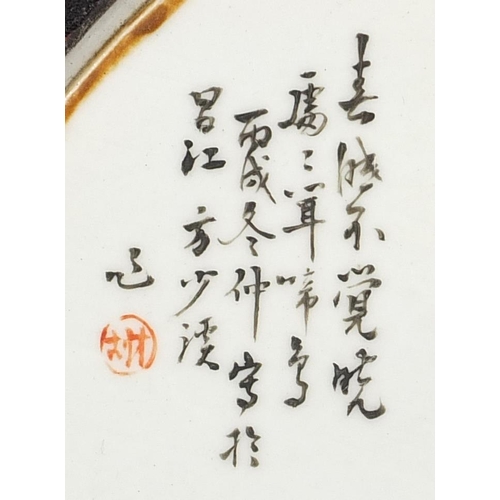 春眠不覺曉
處々聞啼鳥
丙戌冬仲寫於
昌江方少溪